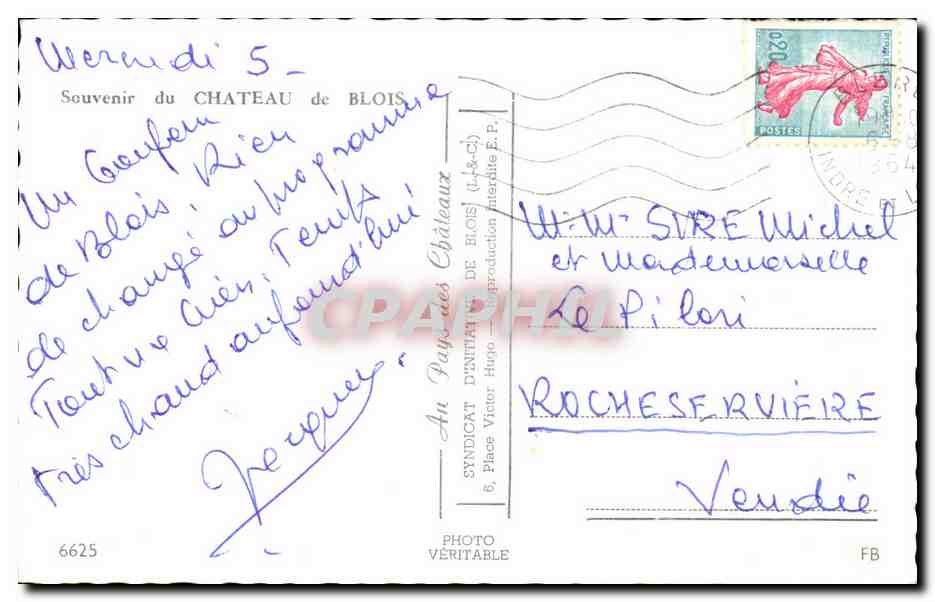 Mercredi 5 -
Souvenir du CHATEAU de BLOIS
Un Bonjour
de Blois. Rien
de changé au programme
Tout va bien. Temps
très chaud aujourd'hui
Jacques.
Au Pays des Châteaux
SYNDICAT D'INITIATIVE DE BLOIS (L.-&-C.)
6, Place Victor Hugo — Reproduction interdite E. P.
0,20
POSTES
REPUBLIQUE FRANÇAISE
1964
INDRE ET L
Mr Mme SIRE Michel
et Mademoiselle
Le Pilori
ROCHESERVIÈRE
Vendée
CPAPHIL
6625
PHOTO
VÉRITABLE
FB